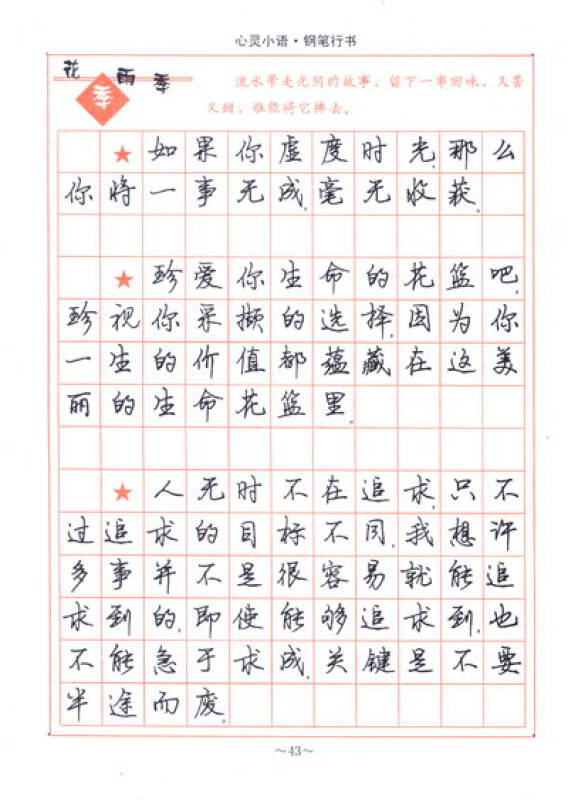 心灵小语·钢笔行书
花雨季
季
流水带走光阴的故事，留下一串回味，又苦
又甜，谁能将它拂去。
★如果你虚度时光,那么
你将一事无成,毫无收获.
★珍爱你生命的花篮吧,
珍视你采撷的选择,因为你
一生的价值都蕴藏在这美
丽的生命花篮里.
★人无时不在追求,只不
过追求的目标不同.我想许
多事并不是很容易就能追
求到的,即使能够追求到,也
不能急于求成,关键是不要
半途而废.
～43～